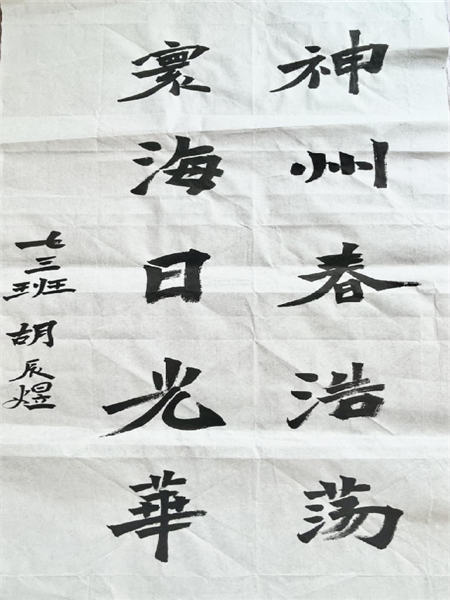 神州春浩荡
寰海日光華
七三班 胡辰煜